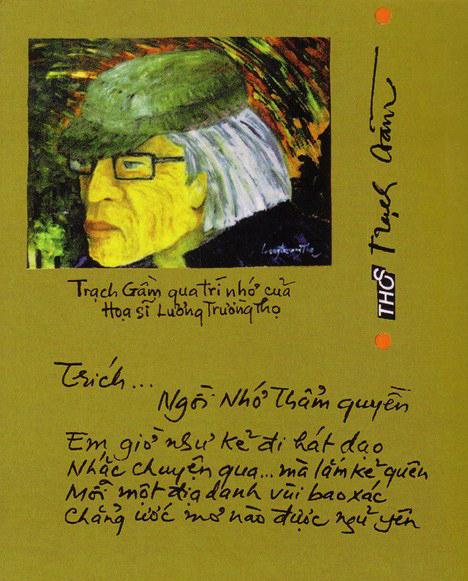 Trạch Gầm qua trí nhớ của
Họa sĩ Lương Trường Thọ
THƠ Trạch Gầm
Trích...
Ngồi Nhớ Thẩm quyền
Em giờ như kẻ đi hát dạo
Nhắc chuyện qua... mà lắm kẻ quên
Mỗi một địa danh vùi bao xác
Chẳng ước mơ nào được ngủ yên